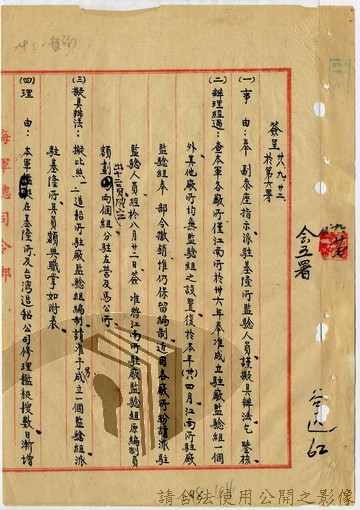 簽呈 卅八、九、廿二
於第六署
(一)事　由:奉　副泰座指示派駐基隆所監驗人員謹擬具辦法乞　鑒核
(二)辦理經過:查本軍各廠所僅江南所於卅六年奉准成立駐廠監驗組一個
外其他廠所均無監驗組之設置後於本年(卅八)四月江南所駐廠
監驗組奉　部令撤銷惟仍保留編制近因各廠所紛請派駐
監驗人員經於八月廿二日簽　准將江南所駐廠監驗組原編制員
額劃出十三員成立兩個組分駐左營及馬公所
(三)擬具辦法:擬比照一二造船所駐廠監驗組編制請准予成立一個監驗組派
駐基隆所其員額與職掌如附表
(四)理　由:本軍艦艇在基隆所及台灣造船公司修理艦艇艘數日漸增
會五署
海軍總司令部
請合法使用公開之影像